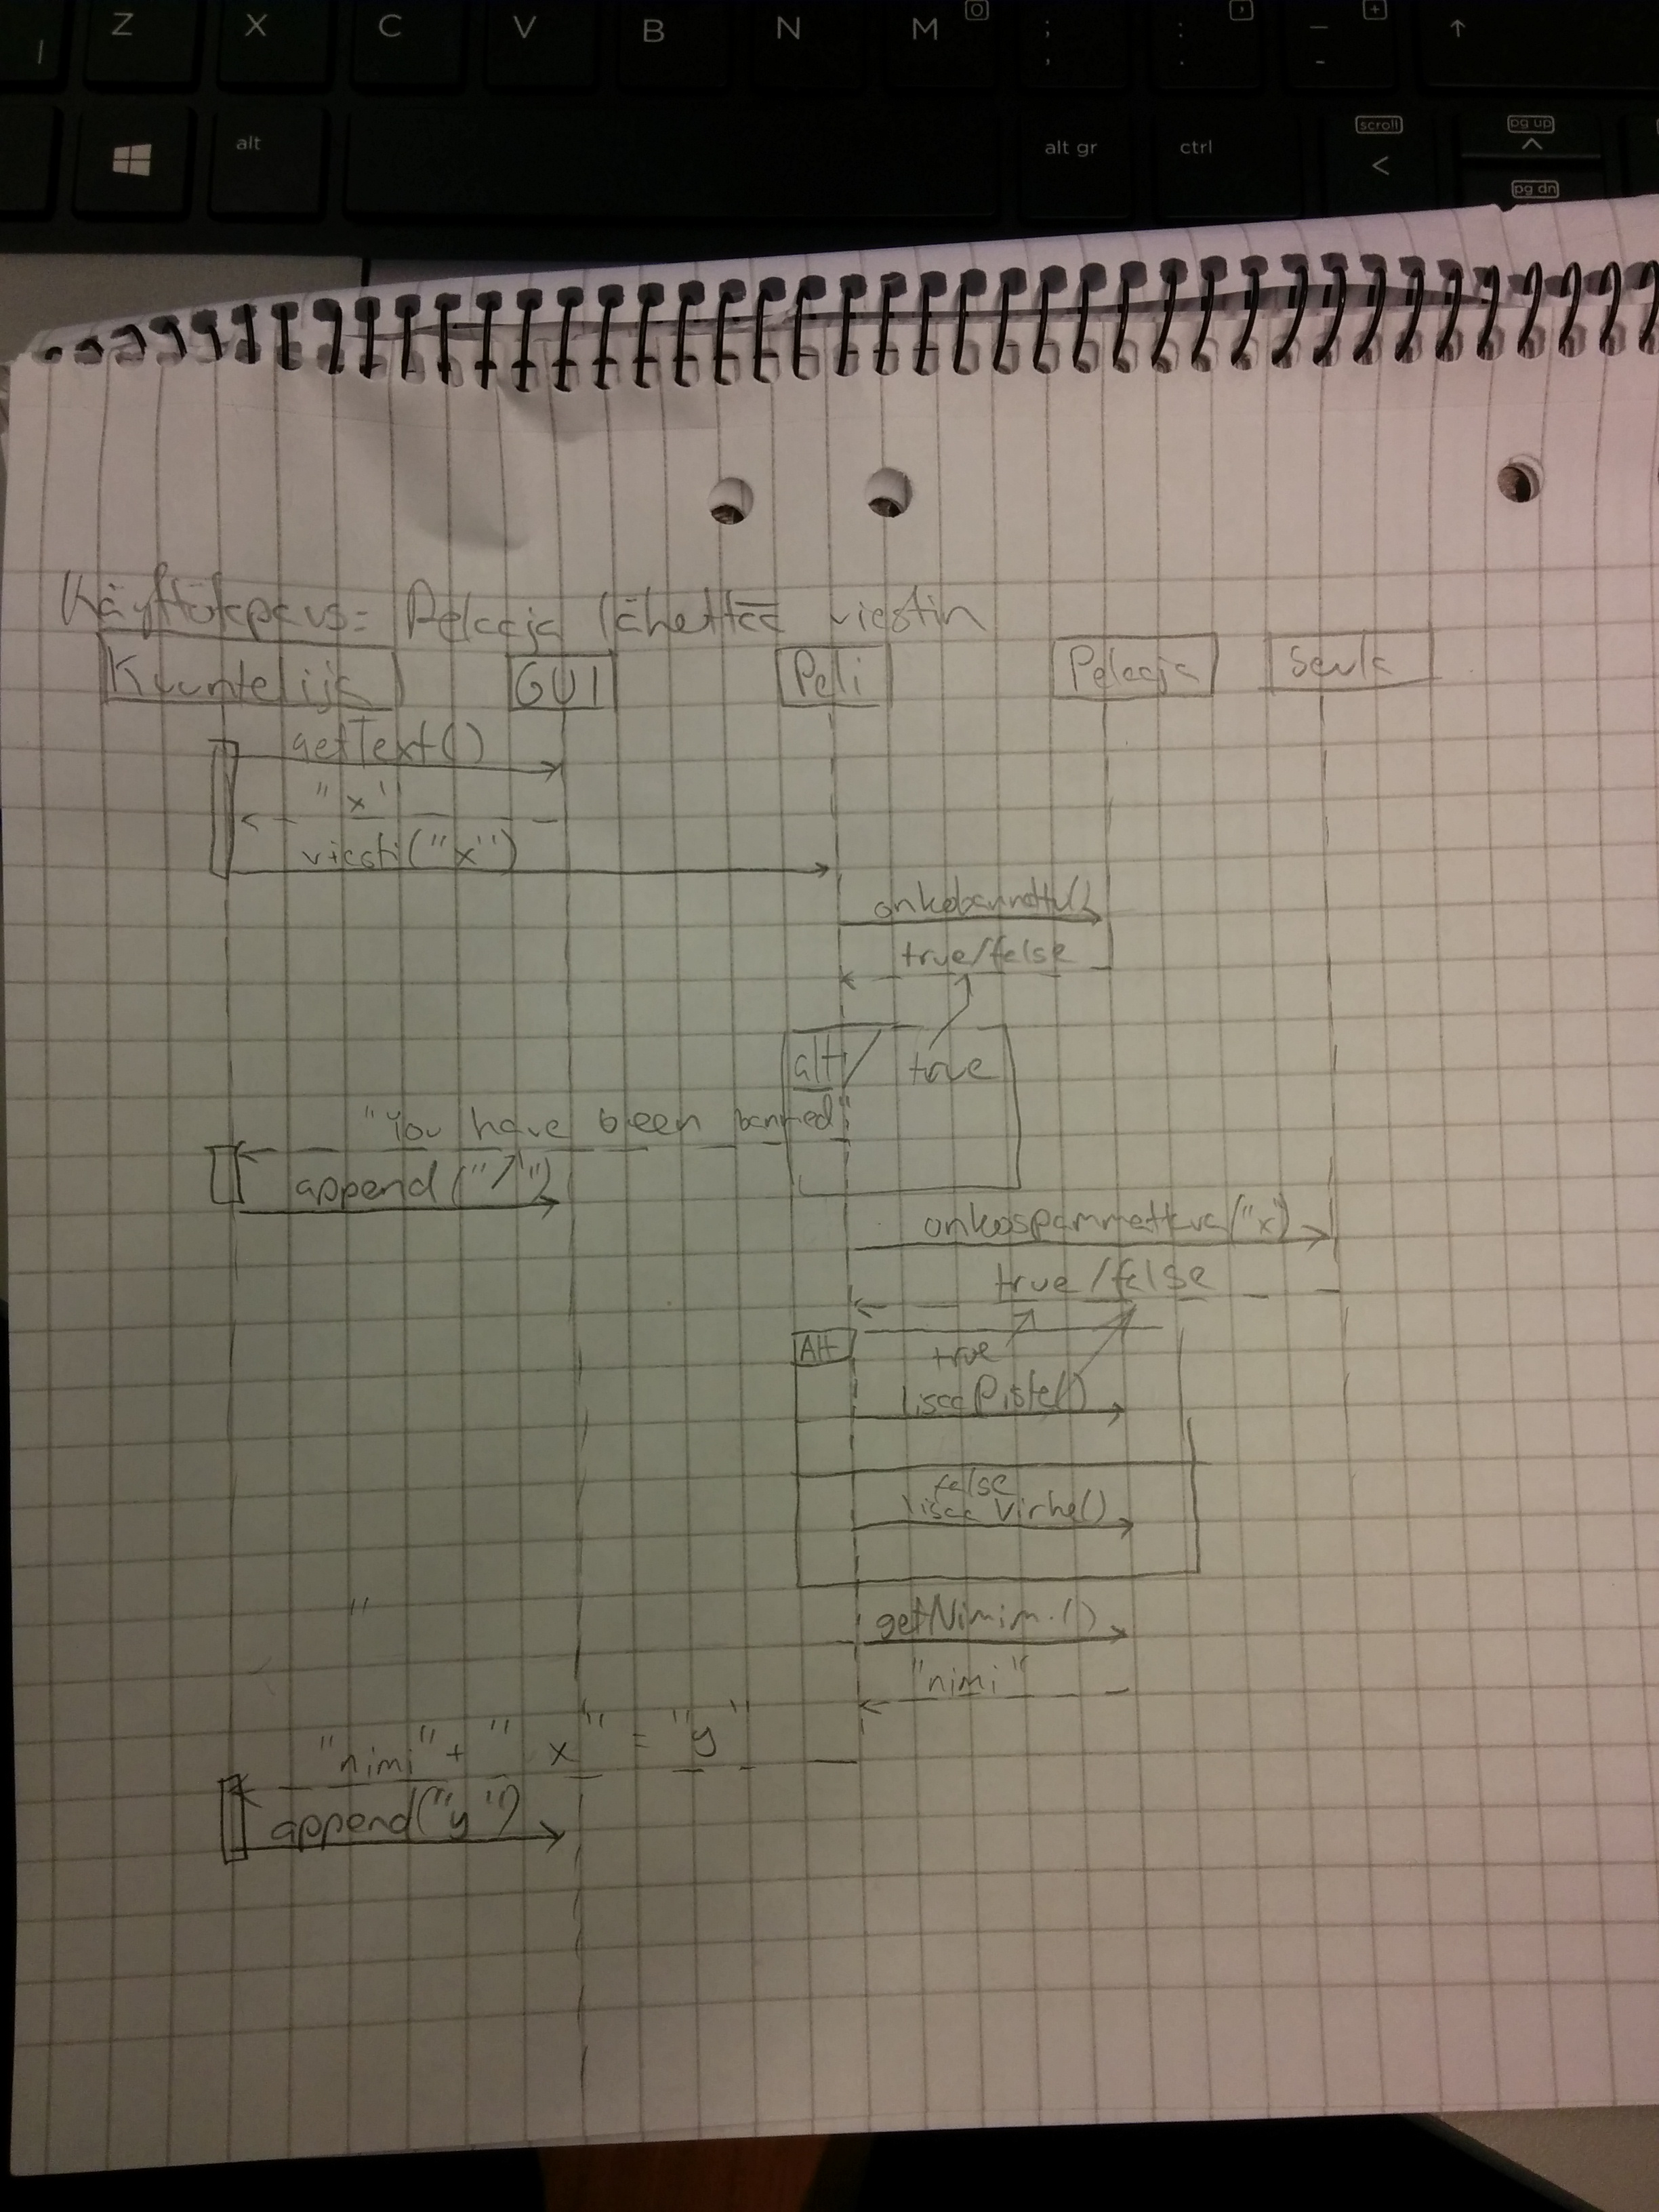 Z X C V B N M O ; , : . , _ - + ↑
alt alt gr ctrl scroll < pg up ^
pg dn
Käyttötapaus: Pelaaja lähettää viestin
Kuuntelija GUI Peli Pelaaja Seula
getText()
"x"
viesti("x")
onkobannattu()
true/false
alt true
"You have been banned"
append("↗")
onkospammattava("x")
true/false
Alt true
lisaaPiste()
false
lisaaVirhe()
"
getNimim.()
"nimi"
"nimi" + " x " = "y"
append("y")